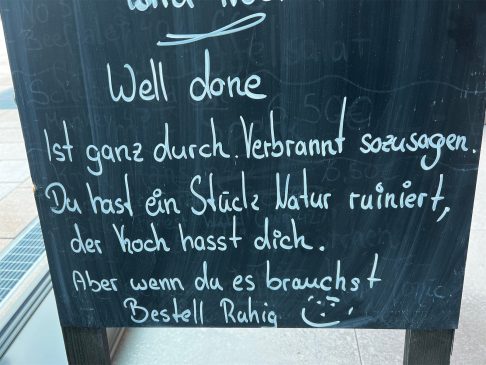 Well done
Ist ganz durch. Verbrannt sozusagen.
Du hast ein Stück Natur ruiniert,
der Koch hasst dich.
Aber wenn du es brauchst
Bestell Ruhig